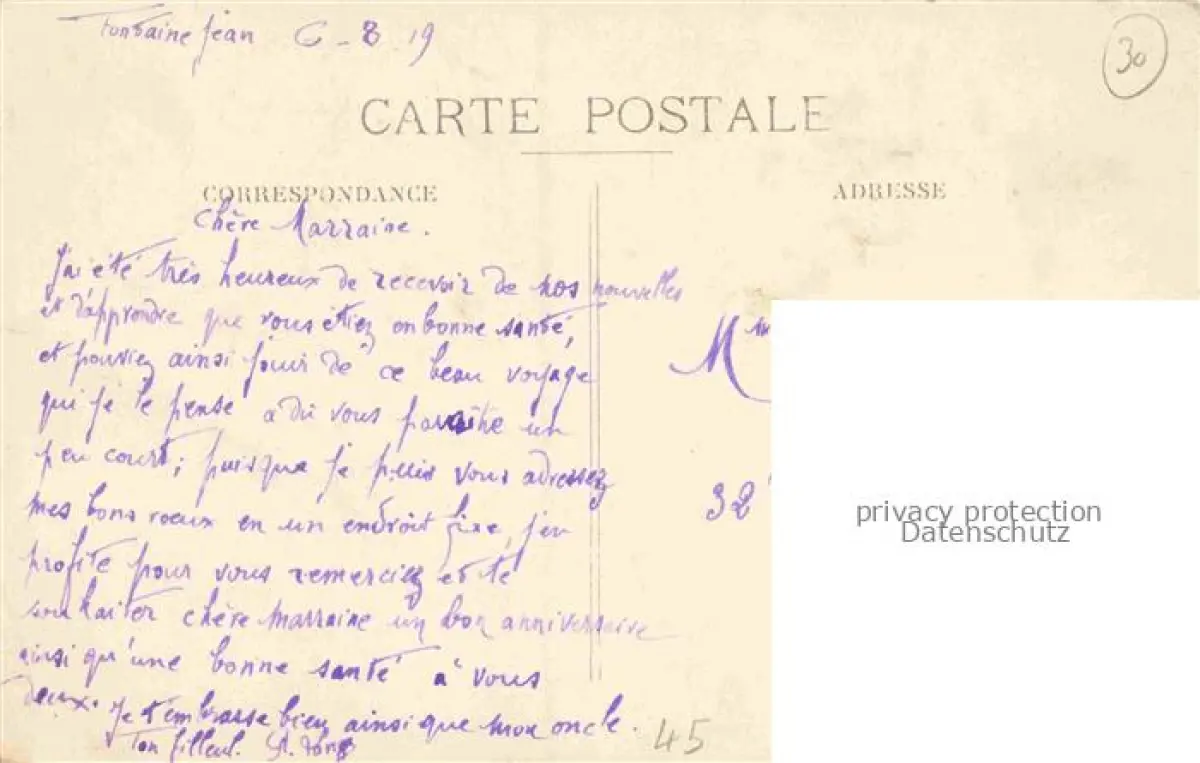 Fontaine Jean 6-8 19
30
CARTE POSTALE
CORRESPONDANCE
ADRESSE
Chère Marraine.
J'ai été très heureux de recevoir de nos nouvelles
et d'apprendre que vous étiez en bonne santé,
et pouviez ainsi jouir de ce beau voyage
qui je le pense a dû vous paraître un
peu court; puisque je puis vous adressez
mes bons voeux en un endroit fixe, j'en
profite pour vous remerciez et te
souhaiter chère marraine un bon anniversaire
ainsi qu'une bonne santé à vous
deux. Je t'embrasse bien ainsi que mon oncle.
Ton filleul.
45
Mme
32
privacy protection
Datenschutz